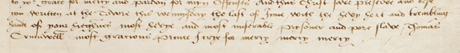 to yor grace for mercy and pardon for my And Christ save preserve and kepe
yow written at the Towre this wensday the last of June with the hevy hert and trembling
hand of your highnes most hevye and most miserable prisoner and pore slave Thomas
Crumwell most gracious Prince I crye for mercy mercy mercy